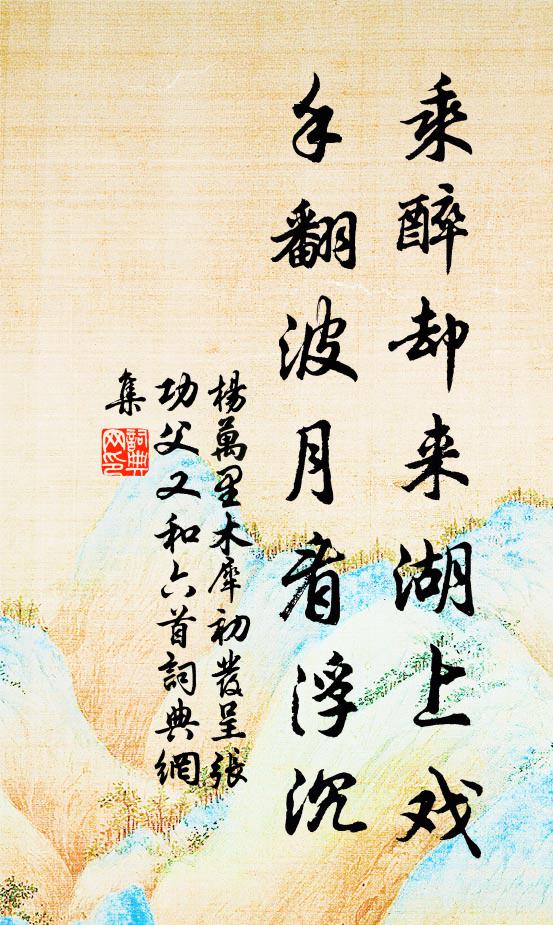 乘醉却来湖上戏
手翻波月看浮沉
楊萬里木犀初發呈張
功父又和六首詞典網
集
詞典
网印